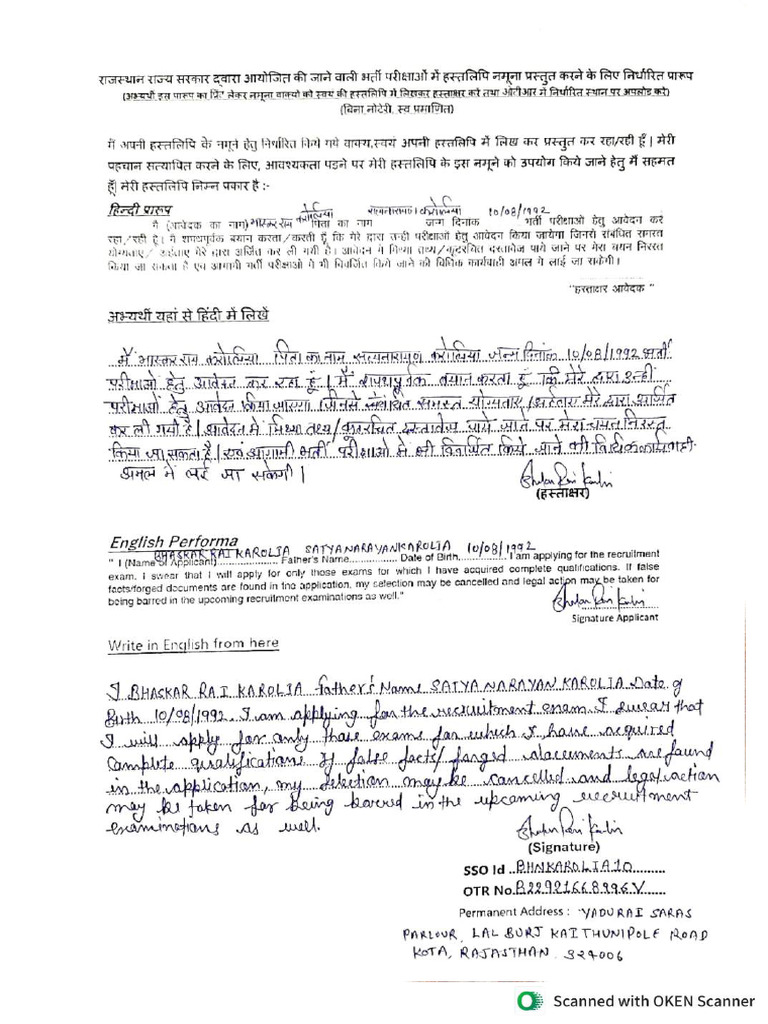 राजस्थान राज्य सरकार द्वारा आयोजित की जाने वाली भर्ती परीक्षाओं में हस्तलिपि नमूना प्रस्तुत करने के लिए निर्धारित प्रारूप
(अभ्यर्थी इस प्रारूप का प्रिंट लेकर नमूना वाक्यों को स्वयं की हस्तलिपि में लिखकर हस्ताक्षर करें तथा ओटीआर में निर्धारित स्थान पर अपलोड करें)
(बिना नोटेरी, स्व प्रमाणित)
मैं अपनी हस्तलिपि के नमूने हेतु निर्धारित किये गये वाक्य,स्वयं अपनी हस्तलिपि में लिख कर प्रस्तुत कर रहा/रही हूँ | मेरी
पहचान सत्यापित करने के लिए, आवश्यकता पडने पर मेरी हस्तलिपि के इस नमूने को उपयोग किये जाने हेतु मैं सहमत
हूँ| मेरी हस्तलिपि निम्न प्रकार है :-
हिन्दी प्रारूप
मैं (आवेदक का नाम) भास्कर राय करोलिया पिता का नाम सत्यनारायण करोलिया जन्म दिनांक 10/08/1992 भर्ती परीक्षाओं हेतु आवेदन कर
रहा/रही है। मैं शपथपूर्वक बयान करता/करती हूँ कि मेरे द्वारा उन्हीं परीक्षाओं हेतु आवेदन किया जायेगा जिनसे संबंधित समस्त
योग्यताएं/ अर्हताए मेरे द्वारा अर्जित कर ली गयी है। आवेदन में मिथ्या तथ्य/कूटरचित दस्तावेज पाये जाने पर मेरा चयन निरस्त
किया जा सकता है एवं आगामी भर्ती परीक्षाओं मे भी विवर्जित किये जाने की विधिक कार्यवाही अमल मे लाई जा सकेगी।
"हस्ताक्षर आवेदक "
अभ्यर्थी यहां से हिंदी में लिखें
मैं भास्कर राय करोलिया पिता का नाम सत्यनारायण करोलिया जन्म दिनांक 10/08/1992 भर्ती
परीक्षाओं हेतु आवेदन कर रहा हूं। मैं शपथपूर्वक बयान करता हूं कि मेरे द्वारा उन्हीं
परीक्षाओं हेतु आवेदन किया जाएगा जिनसे संबंधित समस्त योग्यताएं/अर्हताएं मेरे द्वारा अर्जित
कर ली गयी है। आवेदन में मिथ्या तथ्य/कूटरचित दस्तावेज पाये जाने पर मेरा चयन निरस्त
किया जा सकता है। एवं आगामी भर्ती परीक्षाओं में भी विवर्जित किये जाने की विधिक कार्यवाही
अमल में लाई जा सकेगी।
(हस्ताक्षर)
English Performa
" I (Name of Applicant) BHASKAR RAI KAROLIA Father's Name SATYANARAYAN KAROLIA Date of Birth 10/08/1992 I am applying for the recruitment
exam. I swear that I will apply for only those exams for which I have acquired complete qualifications. If false
facts/forged documents are found in the application, my selection may be cancelled and legal action may be taken for
being barred in the upcoming recruitment examinations as well."
Signature Applicant
Write in English from here
I BHASKAR RAI KAROLIA Father's Name SATYA NARAYAN KAROLIA Date of
Birth 10/08/1992. I am applying for the recruitment exam. I swear that
I will apply for only those exams for which I have acquired
complete qualifications If false facts/ forged documents are found
in the application, my selection may be cancelled and legal action
may be taken for being barred in the upcoming recruitment
examinations as well.
(Signature)
SSO Id ..BHNKAROLIA10.........
OTR No.B22921668996V......
Permanent Address : YADURAI SARAS
PARLOUR, LAL BURJ KAITHUNIPOLE ROAD
KOTA, RAJASTHAN 324006
Scanned with OKEN Scanner